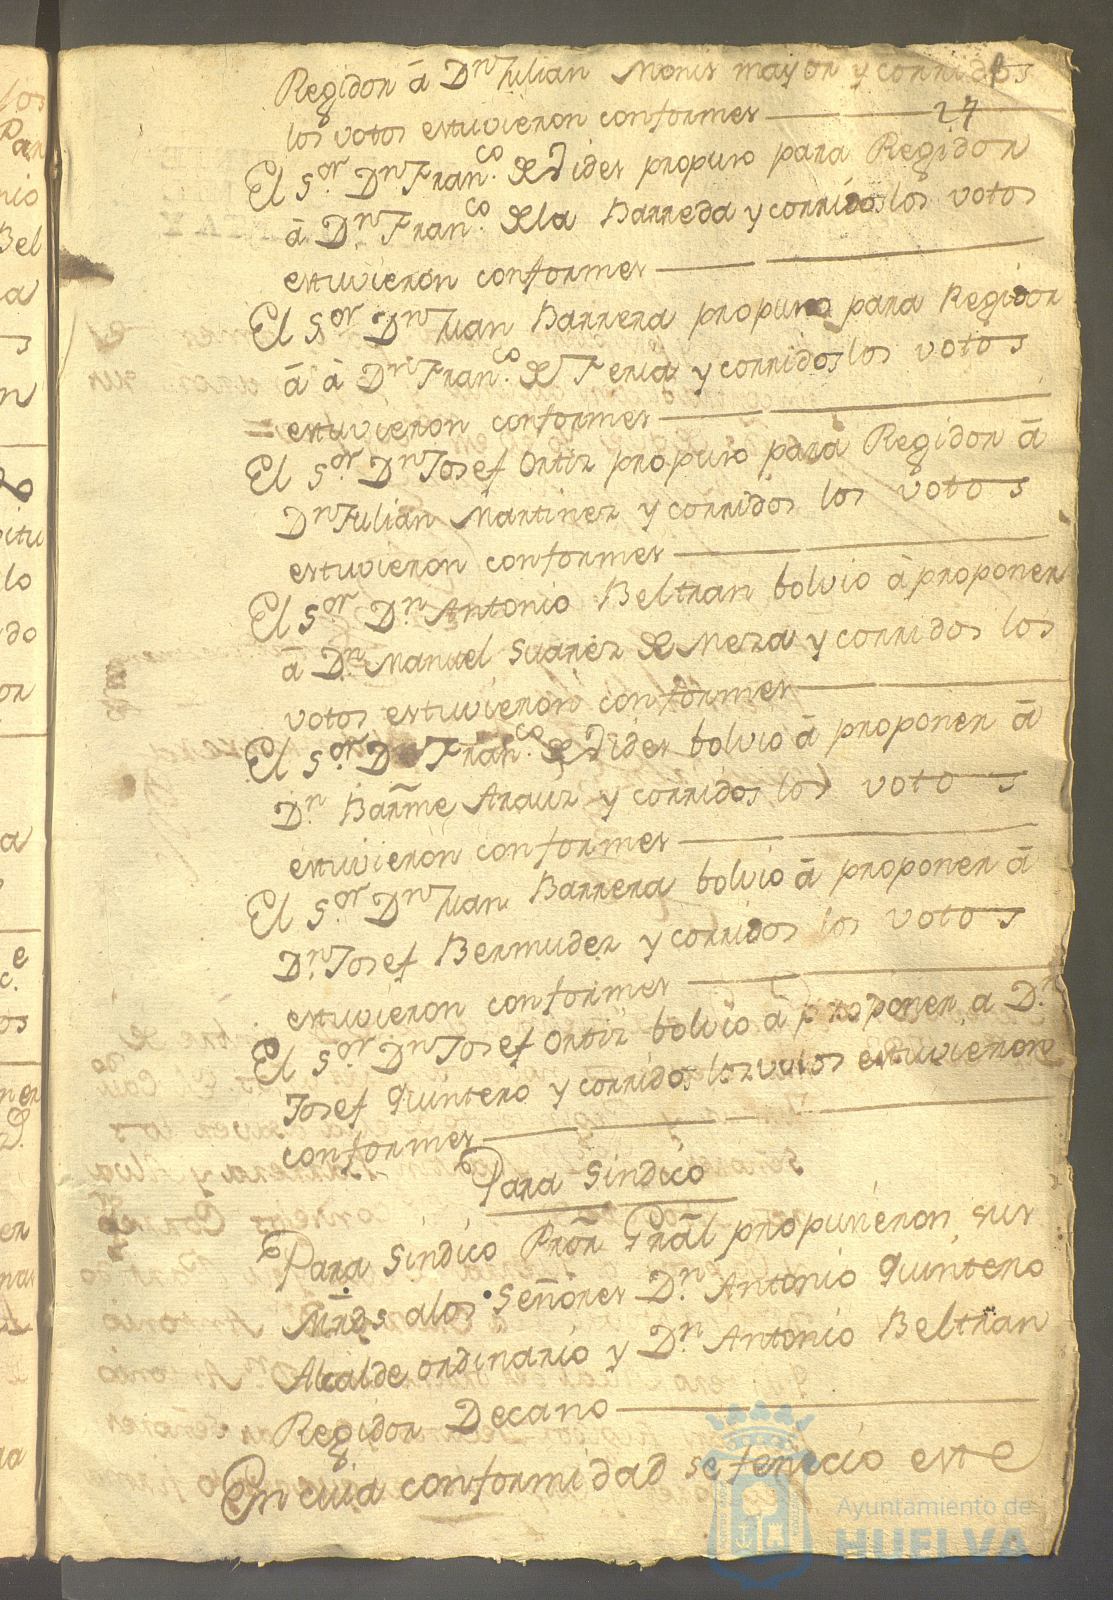 Regidor â Dn Julian Monis mayor y corridos
los votos estuvieron conformes 27
El Sor. Dn Franco. de Fides propuso para Regidor
â Dn Franco. de la Barreda y corridos los votos
estuvieron conformes
El Sor Dn Juan Barrera propuso para Regidor
â â Dn Franco. de Feria y corridos los votos
estuvieron conformes
El Sor Dn Josef Ortiz propuso para Regidor â
Dn Julian Martinez y corridos los votos
estuvieron conformes
El Sor Dn Antonio Beltran bolvio â proponer
â Dn Manuel Suarez de Meza y corridos los
votos estuvieron conformes
El Sor. Dn Franco. de Fides bolvio â proponer â
Dn Barme Arauz y corridos los votos
estuvieron conformes
El Sor Dn Juan Barrera bolvio â proponer â
Dn Josef Bermudez y corridos los votos
estuvieron conformes
El Sor Dn Josef Ortiz bolvio â proponer a Dn
Josef Quintero y corridos los votos estuvieron
conformes
Para Sindico
Para Sindico Prōr Grāl propusieron sus
Mrds. alos Señores Dn. Antonio Quintero
Alcalde ordinario y Dn Antonio Beltran
Regidor Decano
En cuia conformidad se fenecio este
Ayuntamiento de
HUELVA